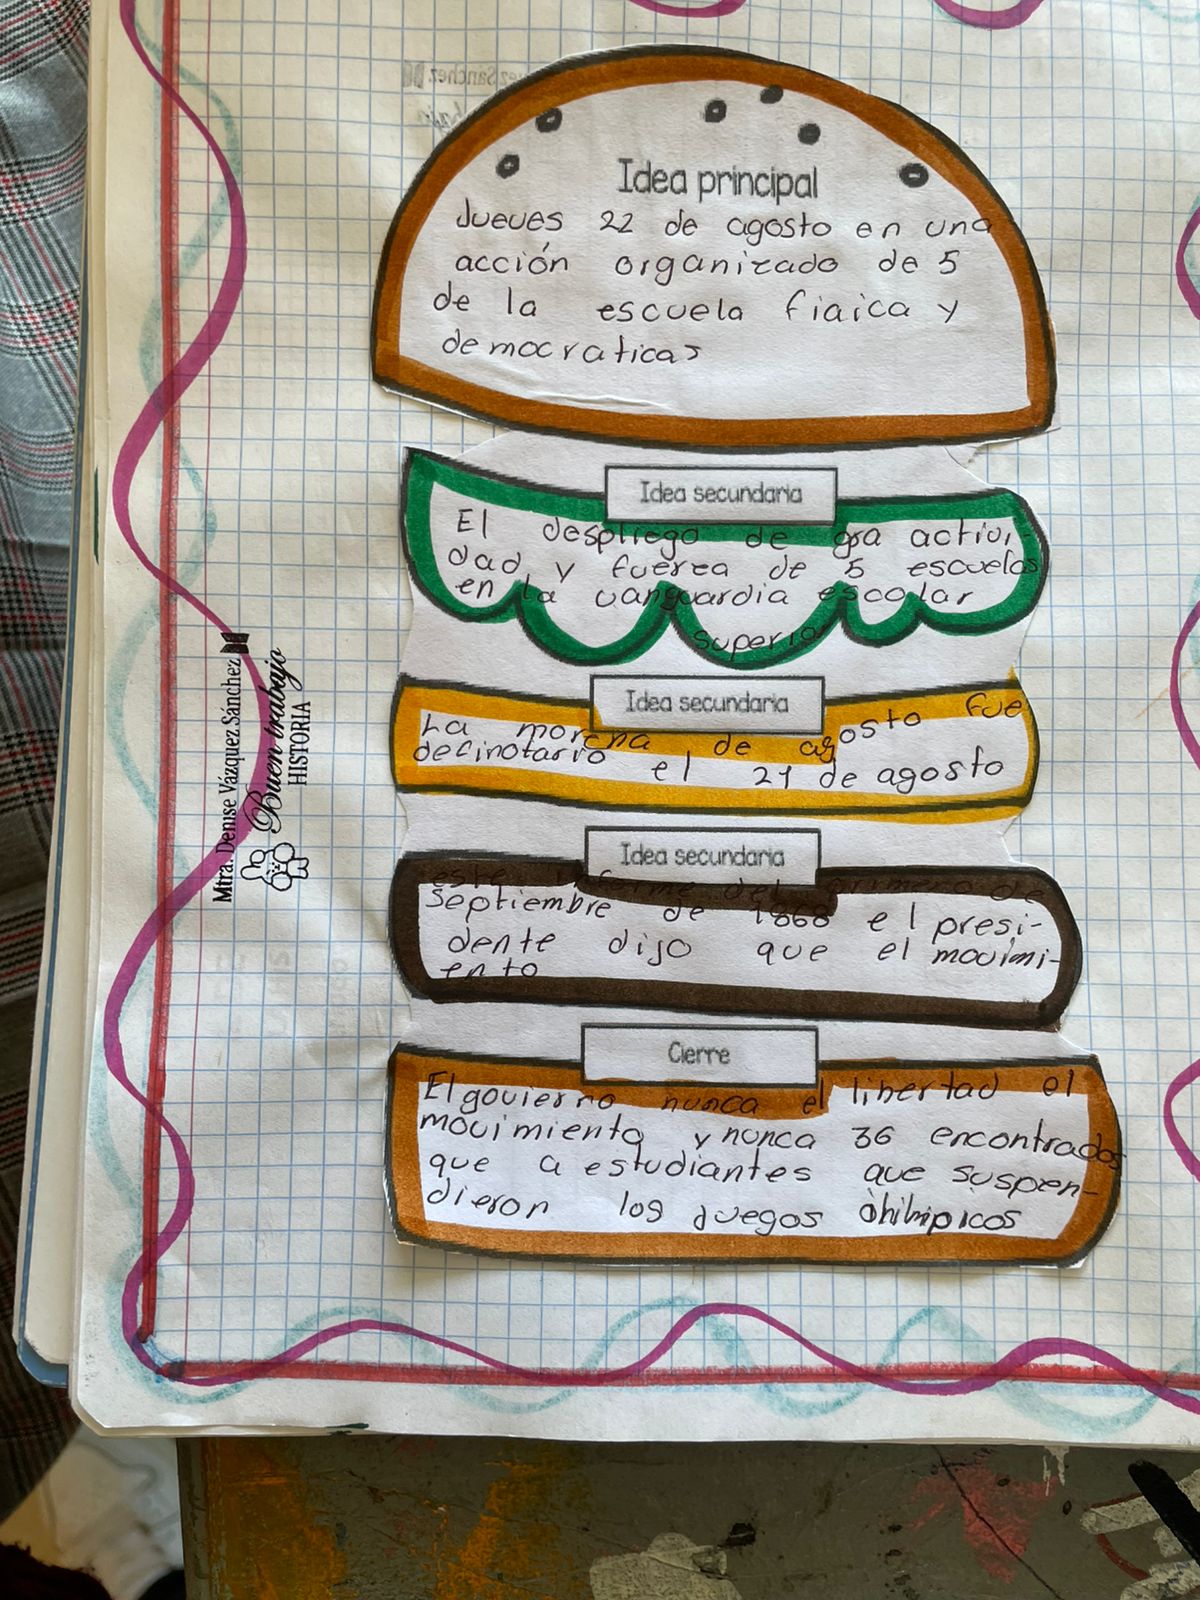 Idea principal
Jueves 22 de agosto en una
acción organizado de 5
de la escuela fiaica y
democraticas
Idea secundaria
El despliego de gra activi-
dad y fuerza de 5 escuelas
en la vanguardia escolar
superio
Idea secundaria
La morcha de agosto fue
definotario el 21 de agosto
Idea secundaria
este informe del primero de
Septiembre de 1868 e l presi-
dente dijo que el movimi-
ento
Cierre
El govierno nunca el libertad el
movimiento y nunca 36 encontrados
que a estudiantes que suspen-
dieron los Juegos
Mtra. Denise Vázquez Sánchez
Buen trabajo
HISTORIA